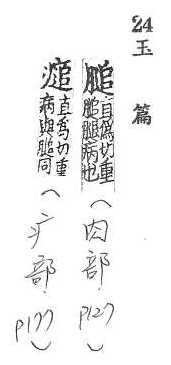 24玉篇
膇 直為切重膇腿病也(肉部.P127)
㿏 直為切重病與膇同(疒部.P177)